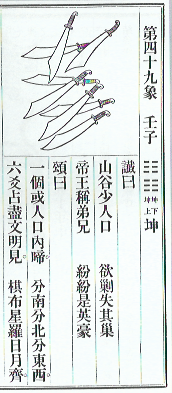 第四十九象 壬子
☷☷ 坤下 坤上 坤
讖曰
山谷少人口 欲剿失其巢
帝王稱弟兄 紛紛是英豪
頌曰
一個或人口內啼。 分南分北分東西。
六爻占盡文明見 棋布星羅日月齊